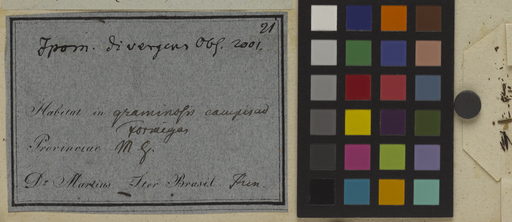 21
Ipom. divergens Obs. 2001.
Habitat in graminosis campis ad
Provinciae M. G.
Dr. Martius Iter Brasil. Jun.